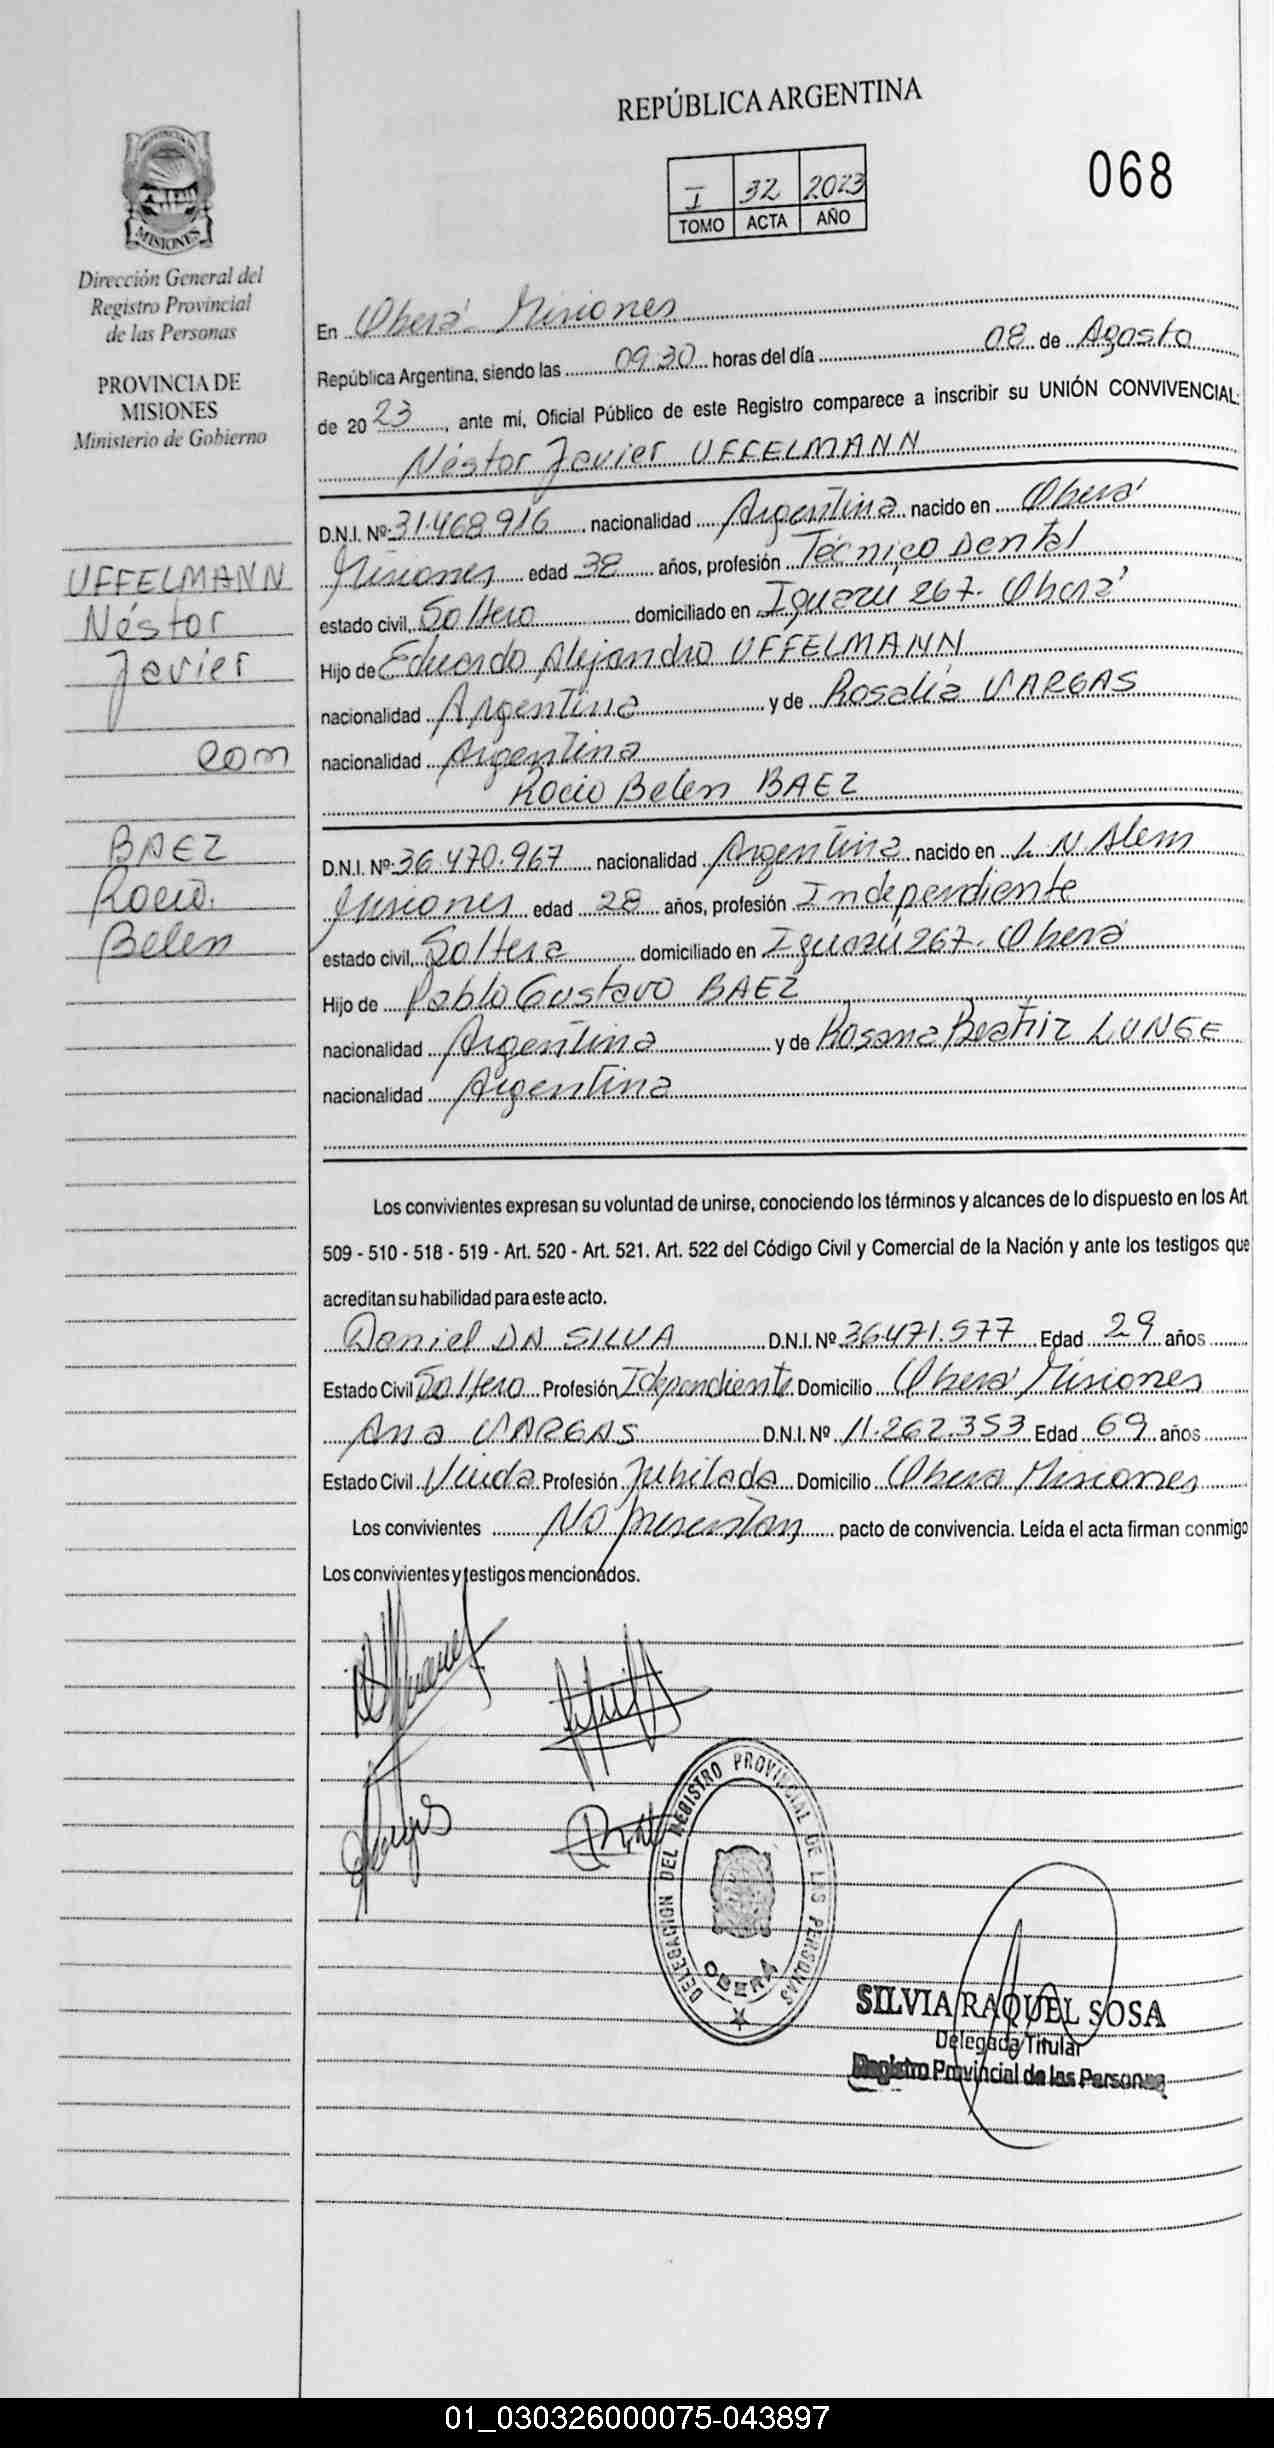 REPÚBLICA ARGENTINA
I 32 2023
TOMO ACTA AÑO
068
PROVINCIA DE
MISIONES
Dirección General del
Registro Provincial
de las Personas
PROVINCIA DE
MISIONES
Ministerio de Gobierno
UFFELMANN
Néstor
Javier
con
BAEZ
Rocio.
Belen
En Oberá - Misiones
República Argentina, siendo las 09:30 horas del día 08 de Agosto
de 2023, ante mí, Oficial Público de este Registro comparece a inscribir su UNIÓN CONVIVENCIAL:
Néstor Javier UFFELMANN
D.N.I. Nº 31.468.916, nacionalidad Argentina nacido en Oberá
Misiones edad 38 años, profesión Técnico Dental
estado civil, Soltero domiciliado en Iguazú 267. Oberá
Hijo de Eduardo Alejandro UFFELMANN
nacionalidad Argentina y de Rosalía VARGAS
nacionalidad Argentina
Rocio Belen BAEZ
D.N.I. Nº 36.470.967 nacionalidad Argentina nacido en L. N. Alem
Misiones edad 28 años, profesión Independiente
estado civil, Soltera domiciliado en Iguazú 267. Oberá
Hijo de Pablo Gustavo BAEZ
nacionalidad Argentina y de Rosana Beatriz LUNGE
nacionalidad Argentina
Los convivientes expresan su voluntad de unirse, conociendo los términos y alcances de lo dispuesto en los Art.
509 - 510 - 518 - 519 - Art. 520 - Art. 521. Art. 522 del Código Civil y Comercial de la Nación y ante los testigos que
acreditan su habilidad para este acto.
Daniel DA SILVA D.N.I. Nº 36.471.577 Edad 29 años
Estado Civil Soltero Profesión Idependiente Domicilio Oberá Misiones
Ana VARGAS D.N.I. Nº 11.262.353 Edad 69 años
Estado Civil Viuda Profesión Jubilada Domicilio Obera Misiones
Los convivientes No presentan pacto de convivencia. Leída el acta firman conmigo
Los convivientes y testigos mencionados.
DELEGACION DEL REGISTRO PROVINCIAL DE LAS PERSONAS
OBERA
SILVIA RAQUEL SOSA
Delegada Titular
Registro Provincial de las Personas
01_030326000075-043897